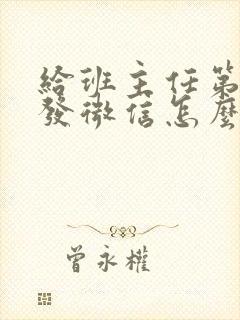 給班主任第
發微信怎麼
曾永權